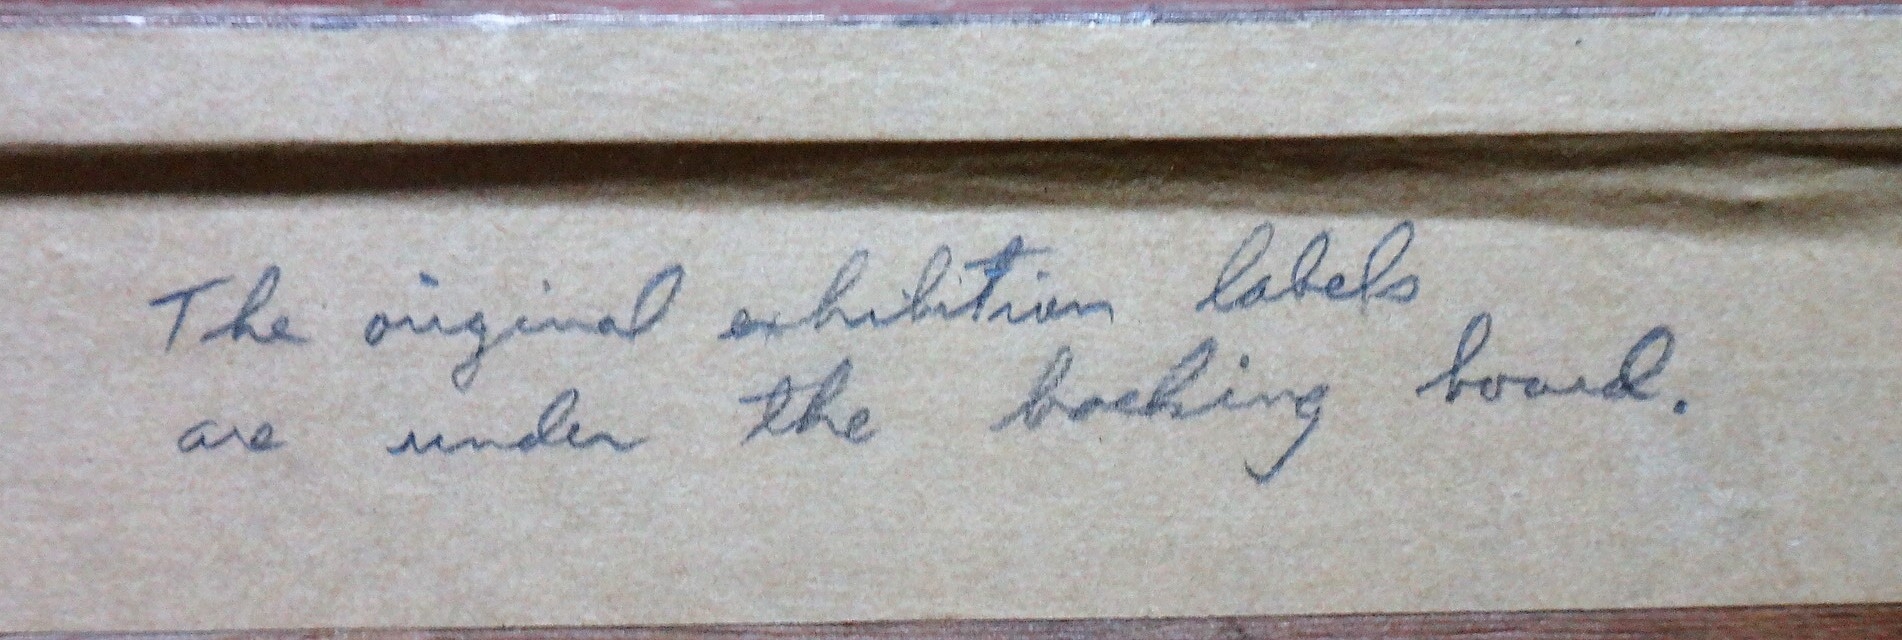 The original exhibition labels
are under the backing board.